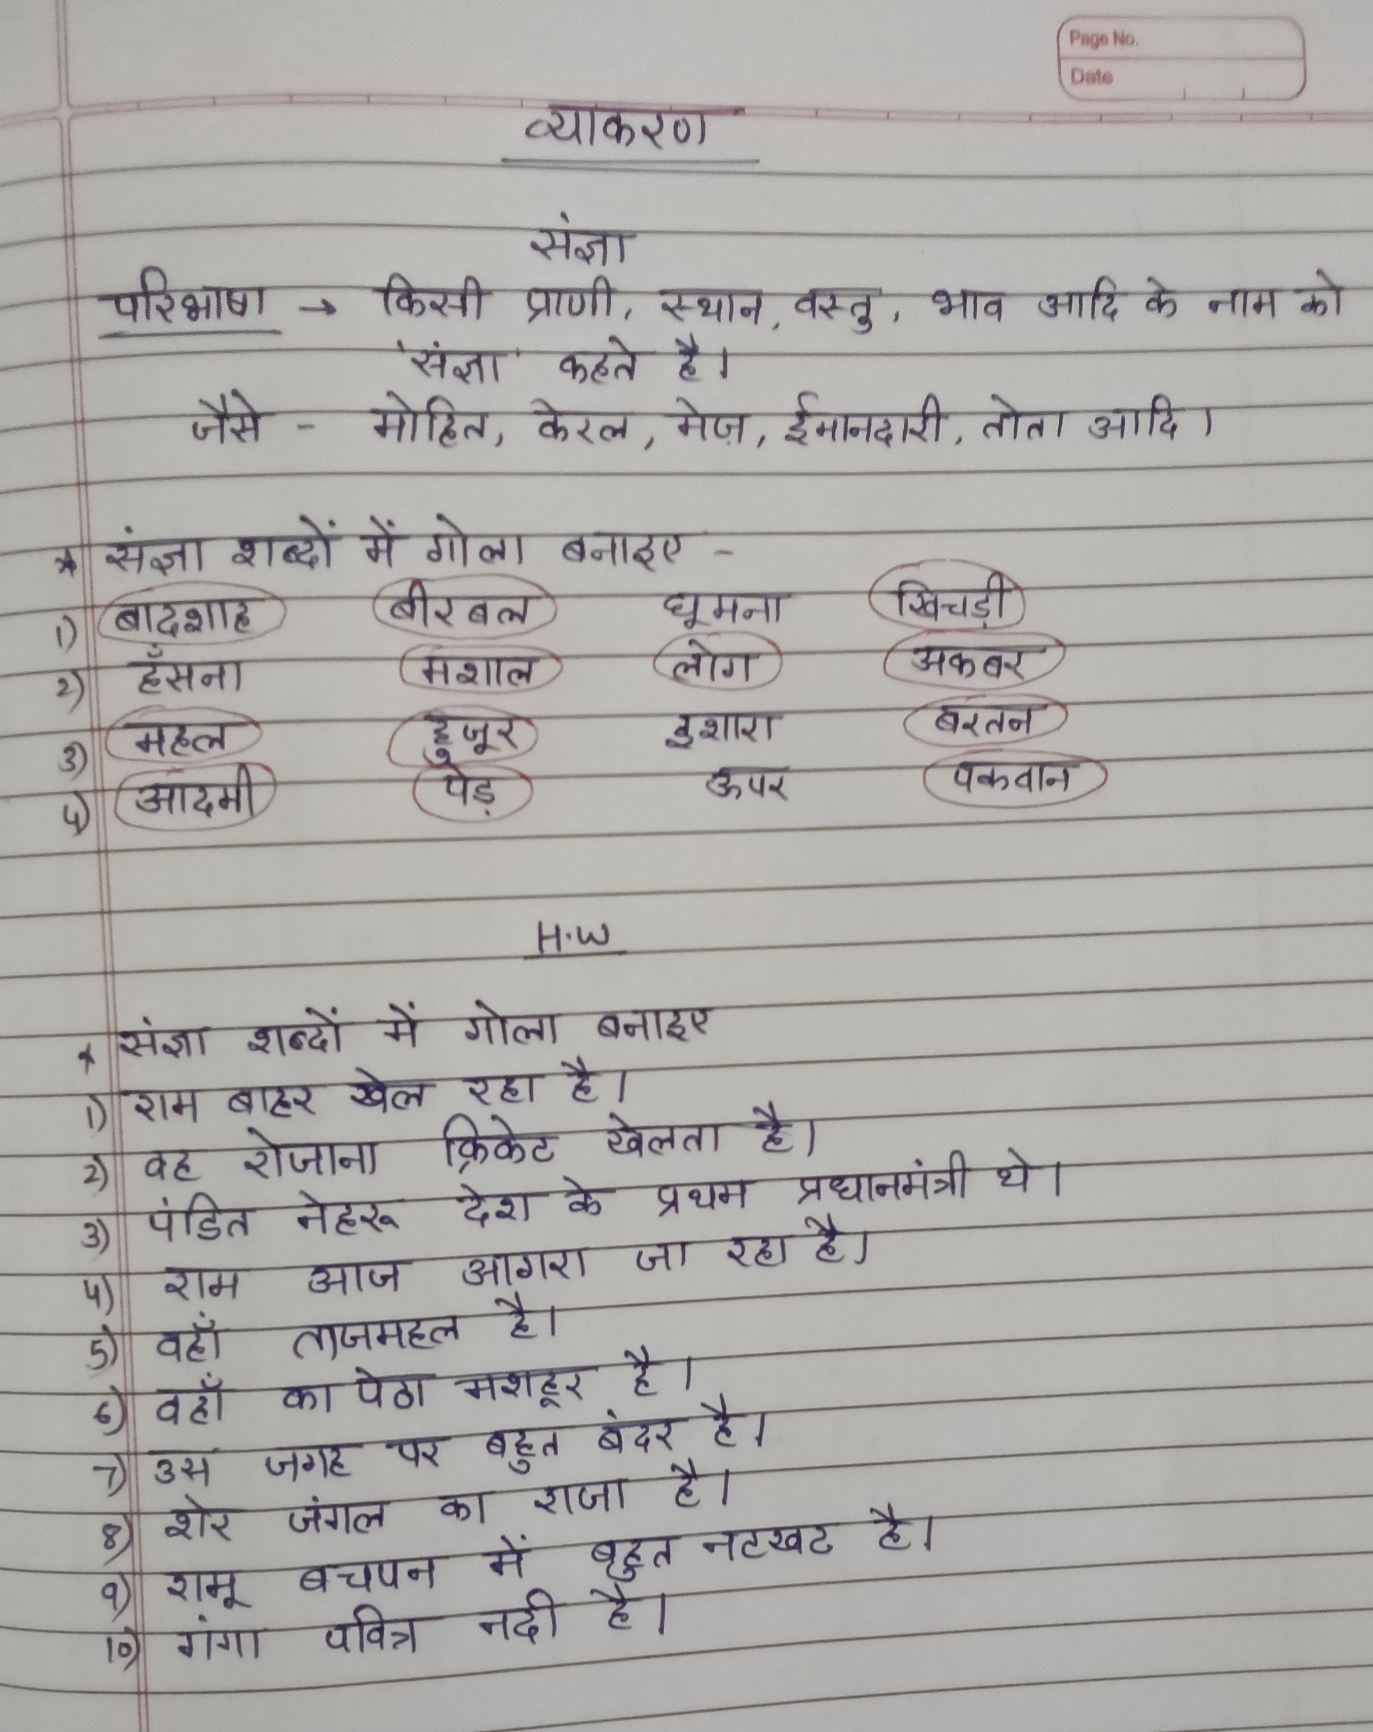 Page No.
Date
व्याकरण
संज्ञा
परिभाषा → किसी प्राणी, स्थान, वस्तु, भाव आदि के नाम को
'संज्ञा' कहते है।
जैसे - मोहित, केरल, मेज़, ईमानदारी, तोता आदि।
* संज्ञा शब्दों में गोला बनाइए -
1) बादशाह बीरबल घूमना खिचड़ी
2) हँसना मशाल लोग अकबर
3) महल हुजूर इशारा बरतन
4) आदमी पेड़ ऊपर पकवान
H.W
* संज्ञा शब्दों में गोला बनाइए
1) राम बाहर खेल रहा है।
2) वह रोजाना क्रिकेट खेलता है।
3) पंडित नेहरू देश के प्रथम प्रधानमंत्री थे।
4) राम आज आगरा जा रहा है।
5) वहाँ ताजमहल है।
6) वहाँ का पेठा मशहूर है।
7) उस जगह पर बहुत बंदर है।
8) शेर जंगल का राजा है।
9) रामू बचपन में बहुत नटखट है।
10) गंगा पवित्र नदी है।